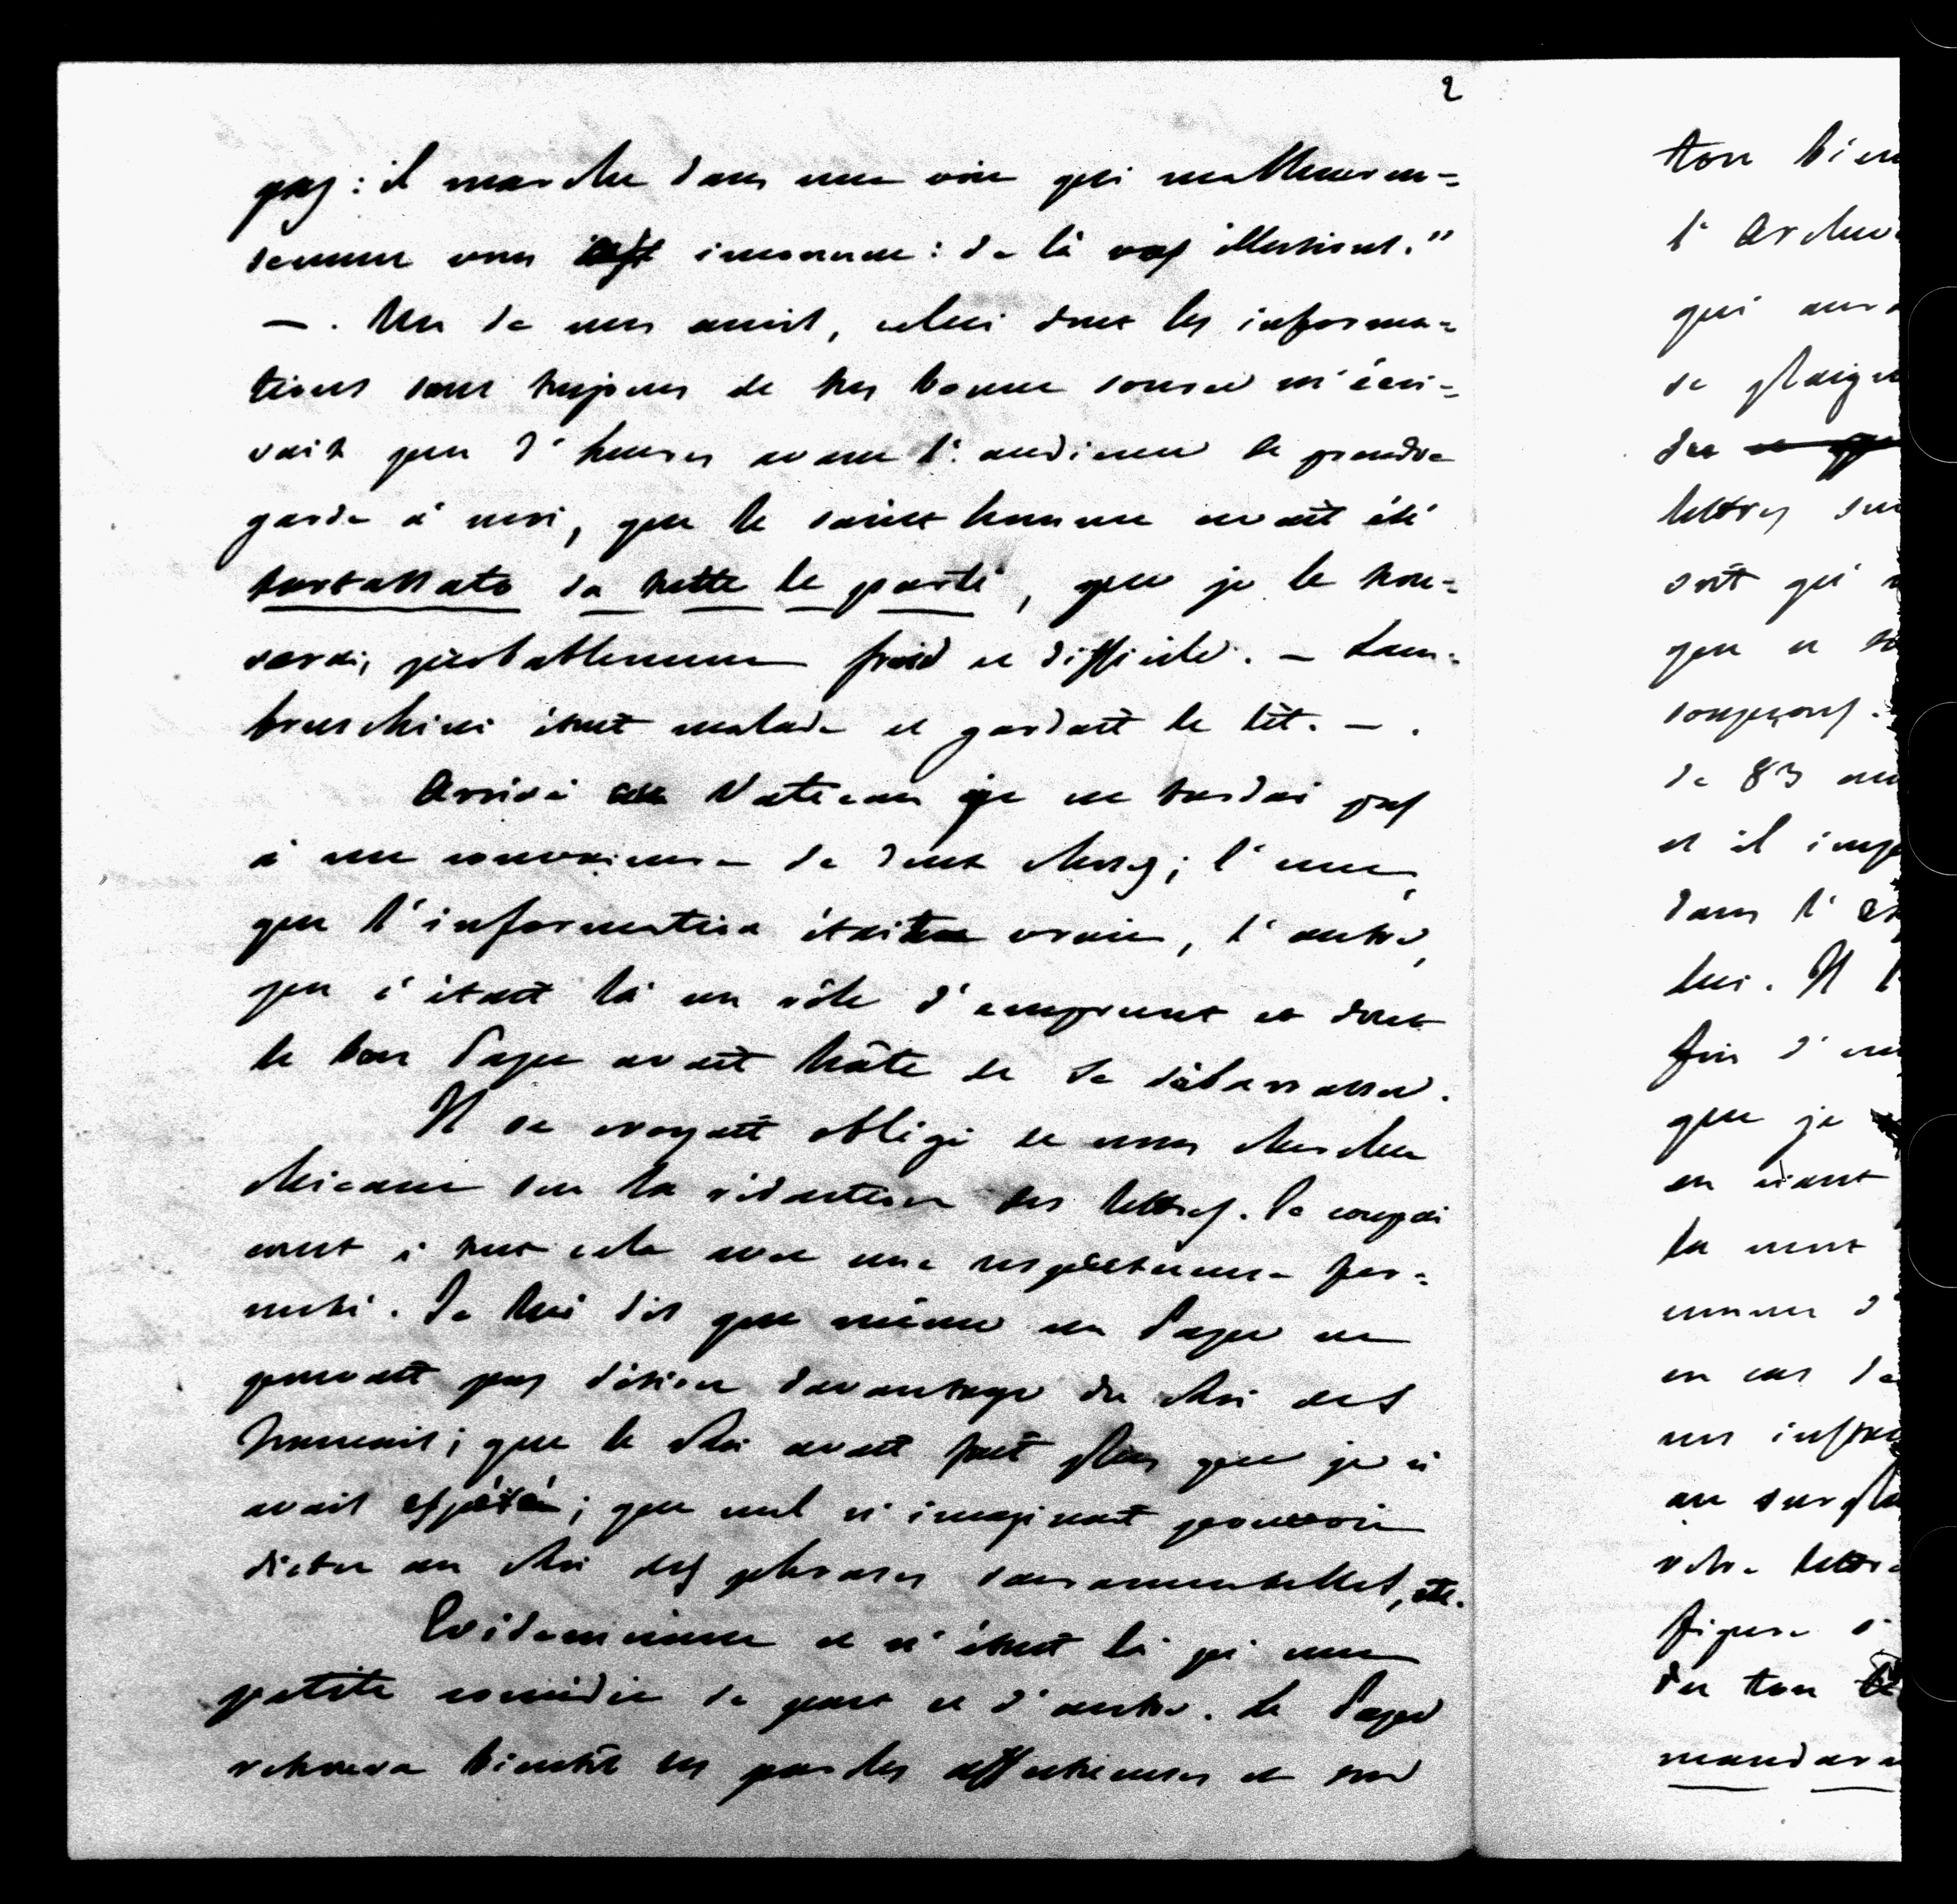 2
pas : il marche dans une voie qui malheureu=
sement vous est inconnue : de là vos illusions."
— . Un de mes amis, celui dont les informa=
tions sont toujours de très bonne source m'écri=
vait peu d'heures avant l'audience de prendre
garde à moi, que le saint homme avait été
tartassato da tutte le parti, que je le trou=
verai, probablement froid et difficile. — Lam=
bruschini était malade et gardait le lit. — .
Arrivé au Vatican je ne tardai pas
à me convaincre de deux choses ; l'une,
que l'information était vraie, l'autre,
que c'était là un rôle d'emprunt et dont
le bon Pape avait hâte de se débarrasser.
Il se croyait obligé de nous chercher
chicane sur la rédaction des lettres. Je coupai
court à tout cela avec une respectueuse fer=
meté. Je lui dis que même un Pape ne
pouvait pas désirer davantage du Roi des
Français ; que le Roi avait fait plus que je n'
avais espéré ; que nul n'imaginait pouvoir
dicter au Roi des phrases sacramentelles, etc.
Evidemment ce n'était là qu'une
petite comédie de part et d'autre. Le Pape
retrouva bientôt ses paroles affectueuses et son
ton bien
l'Arche
qui
se plaign
des
lettres
soit qui
que
soupçons.
de 83
et il
dans l'
lui. Il
fin d'
que je
en riant
la
comme d'
en cas de
au
votre lettre
figure
du ton